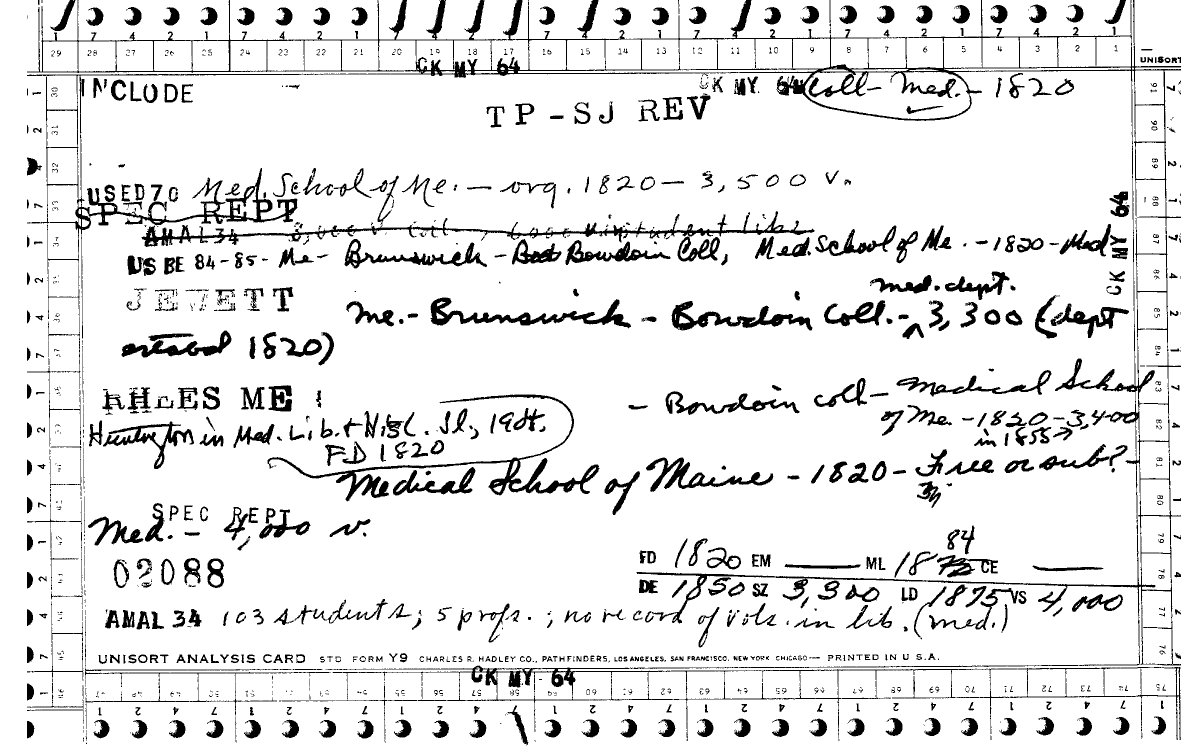 1 7 4 2 1 7 4 2 1 7 4 2 1 7 4 2 1 7 4 2 1 7 4 2 1 7 4 2 1
29 28 27 26 25 24 23 22 21 20 19 18 17 16 15 14 13 12 11 10 9 8 7 6 5 4 3 2 1
UNISORT
CK MY 64
INCLUDE
CK MY 64 Coll- Med. - 1820
TP-SJ REV
USED 70 Med. School of Me. - org. 1820 - 3,500 v.
SPEC REPT
AMAL 34 3,000 v. coll. , 6000 v. in student libs
US BE 84-85 - Me - Brunswick - Bowdoin Coll, Med. School of Me. - 1820 - Med
CK MY 64
JEWETT
med. dept.
Me. - Brunswick - Bowdoin Coll. - ^ 3,300 (dept
estabd 1820)
RHEES ME - Bowdoin coll - Medical School
of Me. - 1820 - 3,400
in 1855 →
Huntington in Med. Lib. + Hist. Jl., 1904.
FD 1820
Medical School of Maine - 1820 - Free or sub? -
SPEC REPT
Med. - 4,000 v.
02088
84
FD 1820 EM ML 1875 CE
DE 1850 SZ 3,300 LD 1875 VS 4,000
AMAL 34 103 students; 5 profs.; no record of vols. in lib. (med.)
UNISORT ANALYSIS CARD STD FORM Y9 CHARLES R. HADLEY CO., PATHFINDERS, LOS ANGELES, SAN FRANCISCO, NEW YORK CHICAGO — PRINTED IN U S A.
CK MY 64